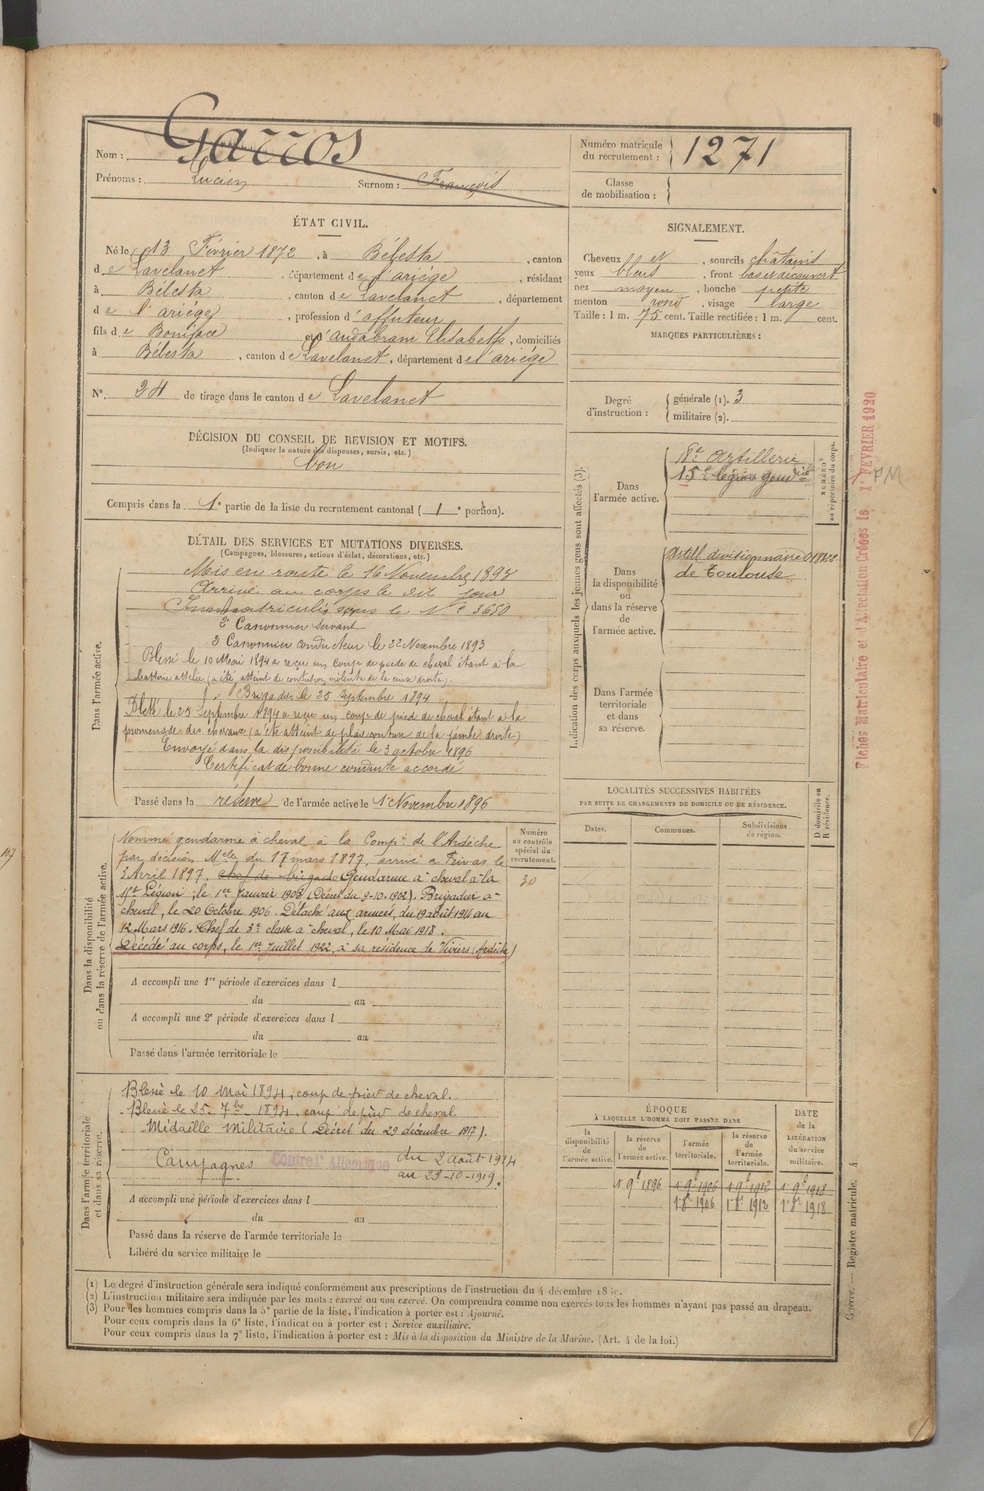 Nom : Garros
Prénoms : Lucien Surnom : François
Numéro matricule du recrutement : 1271
Classe de mobilisation :
ÉTAT CIVIL.
Né le 13 Février 1872, à Bélesta, canton
de Lavelanet, département de l'ariége, résidant
à Bélesta, canton de Lavelanet, département
de l'ariége, profession d'affuteur
fils de Boniface et d'audabram Elisabeth, domiciliés
à Bélesta, canton de Lavelanet, département de l'ariége
N° 24 de tirage dans le canton de Lavelanet
SIGNALEMENT.
Cheveux et, sourcils châtains
yeux bleus, front bas et découvert
nez moyen, bouche petite
menton rond, visage large
Taille : 1 m. 75 cent. Taille rectifiée : 1 m. cent.
MARQUES PARTICULIÈRES :
Degré d'instruction : générale (1). 3
militaire (2).
DÉCISION DU CONSEIL DE REVISION ET MOTIFS.
(Indiquer la nature des dispenses, sursis, etc.)
bon
Compris dans la 1e partie de la liste du recrutement cantonal (1e portion).
DÉTAIL DES SERVICES ET MUTATIONS DIVERSES.
(Campagnes, blessures, actions d'éclat, décorations, etc.)
Dans l'armée active.
Mis en route le 16 Novembre 1893
Arrivé au corps le dit jour
Immatriculé sous le N° 3650
2e Canonnier Servant
2 Canonnier conducteur le 22 Novembre 1893
Blessé le 10 Mai 1894 a reçu un coup de pied de cheval étant à la
batterie attelée (a été atteint de contusion violente de la cuisse droite)
Brigadier le 25 Septembre 1894
Blessé le 25 Septembre 1894 a reçu un coup de pied de cheval étant à la
promenade des chevaux (a été atteint de plaie contuse de la jambe droite)
Envoyé dans la disponibilité le 3 octobre 1896
Certificat de bonne conduite accordé
Passé dans la réserve de l'armée active le 1er Novembre 1896
Indication des corps auxquels les jeunes gens sont affectés (3).
NUMÉROS au répertoire du corps.
Dans l'armée active.
18e Artillerie
15e légion gendrie
Dans la disponibilité ou dans la réserve de l'armée active.
Artill. divisionnaire
de Toulouse
Dans l'armée territoriale et dans sa réserve.
Dans la disponibilité ou dans la réserve de l'armée active.
Nommé gendarme à cheval à la Compie de l'Ardèche
par décision Mlle du 17 mars 1897, arrivé à Privas le
2 Avril 1897, chef de brigade Gendarme à cheval à la
15e Légion, le 1er Janvier 1903 (Décret du 9-10-1902). Brigadier à
cheval, le 20 Octobre 1906. Détaché aux armées, du 19 août 1914 au
12 Mars 1916. Chef de 3e classe à cheval, le 10 Mai 1918.
Décédé au corps, le 1er Juillet 1922, à sa résidence de Viviers (Ardèche)
Numéro au contrôle spécial du recrutement.
30
A accompli une 1re période d'exercices dans l
du au
A accompli une 2e période d'exercices dans l
du au
Passé dans l'armée territoriale le
LOCALITÉS SUCCESSIVES HABITÉES
PAR SUITE DE CHANGEMENTS DE DOMICILE OU DE RÉSIDENCE.
Dates. Communes. Subdivisions de région. D domicile ou R résidence.
Dans l'armée territoriale et dans sa réserve.
Blessé le 10 Mai 1894, coup de pied de cheval.
Blessé le 25 7bre 1894, coup de pied de cheval.
Médaille Militaire (Décret du 29 décembre 1917).
Campagnes Contre l'Allemagne du 2 août 1914
au 23-10-1919.
A accompli une période d'exercices dans l
du au
Passé dans la réserve de l'armée territoriale le
Libéré du service militaire le
ÉPOQUE
À LAQUELLE L'HOMME DOIT PASSER DANS
la disponibilité de l'armée active. la réserve de l'armée active. l'armée territoriale. la réserve de l'armée territoriale. DATE de la LIBÉRATION du service militaire.
1 9e 1896 1 9e 1906 1 9e 1912 1 9e 1918
1 8e 1906 1 8e 1912 1 8e 1918
(1) Le degré d'instruction générale sera indiqué conformément aux prescriptions de l'instruction du 4 décembre 18
(2) L'instruction militaire sera indiquée par les mots : exercé ou non exercé. On comprendra comme non exercés tous les hommes n'ayant pas passé au drapeau.
(3) Pour les hommes compris dans la 5e partie de la liste, l'indication à porter est : Ajourné.
Pour ceux compris dans la 6e liste, l'indication à porter est : Service auxiliaire.
Pour ceux compris dans la 7e liste, l'indication à porter est : Mis à la disposition du Ministre de la Marine. (Art. 4 de la loi.)
Fiches Matriculaire et d'Affectation Créées le 1er FEVRIER 1920
PM
Guerre. — Registre matricule. 4